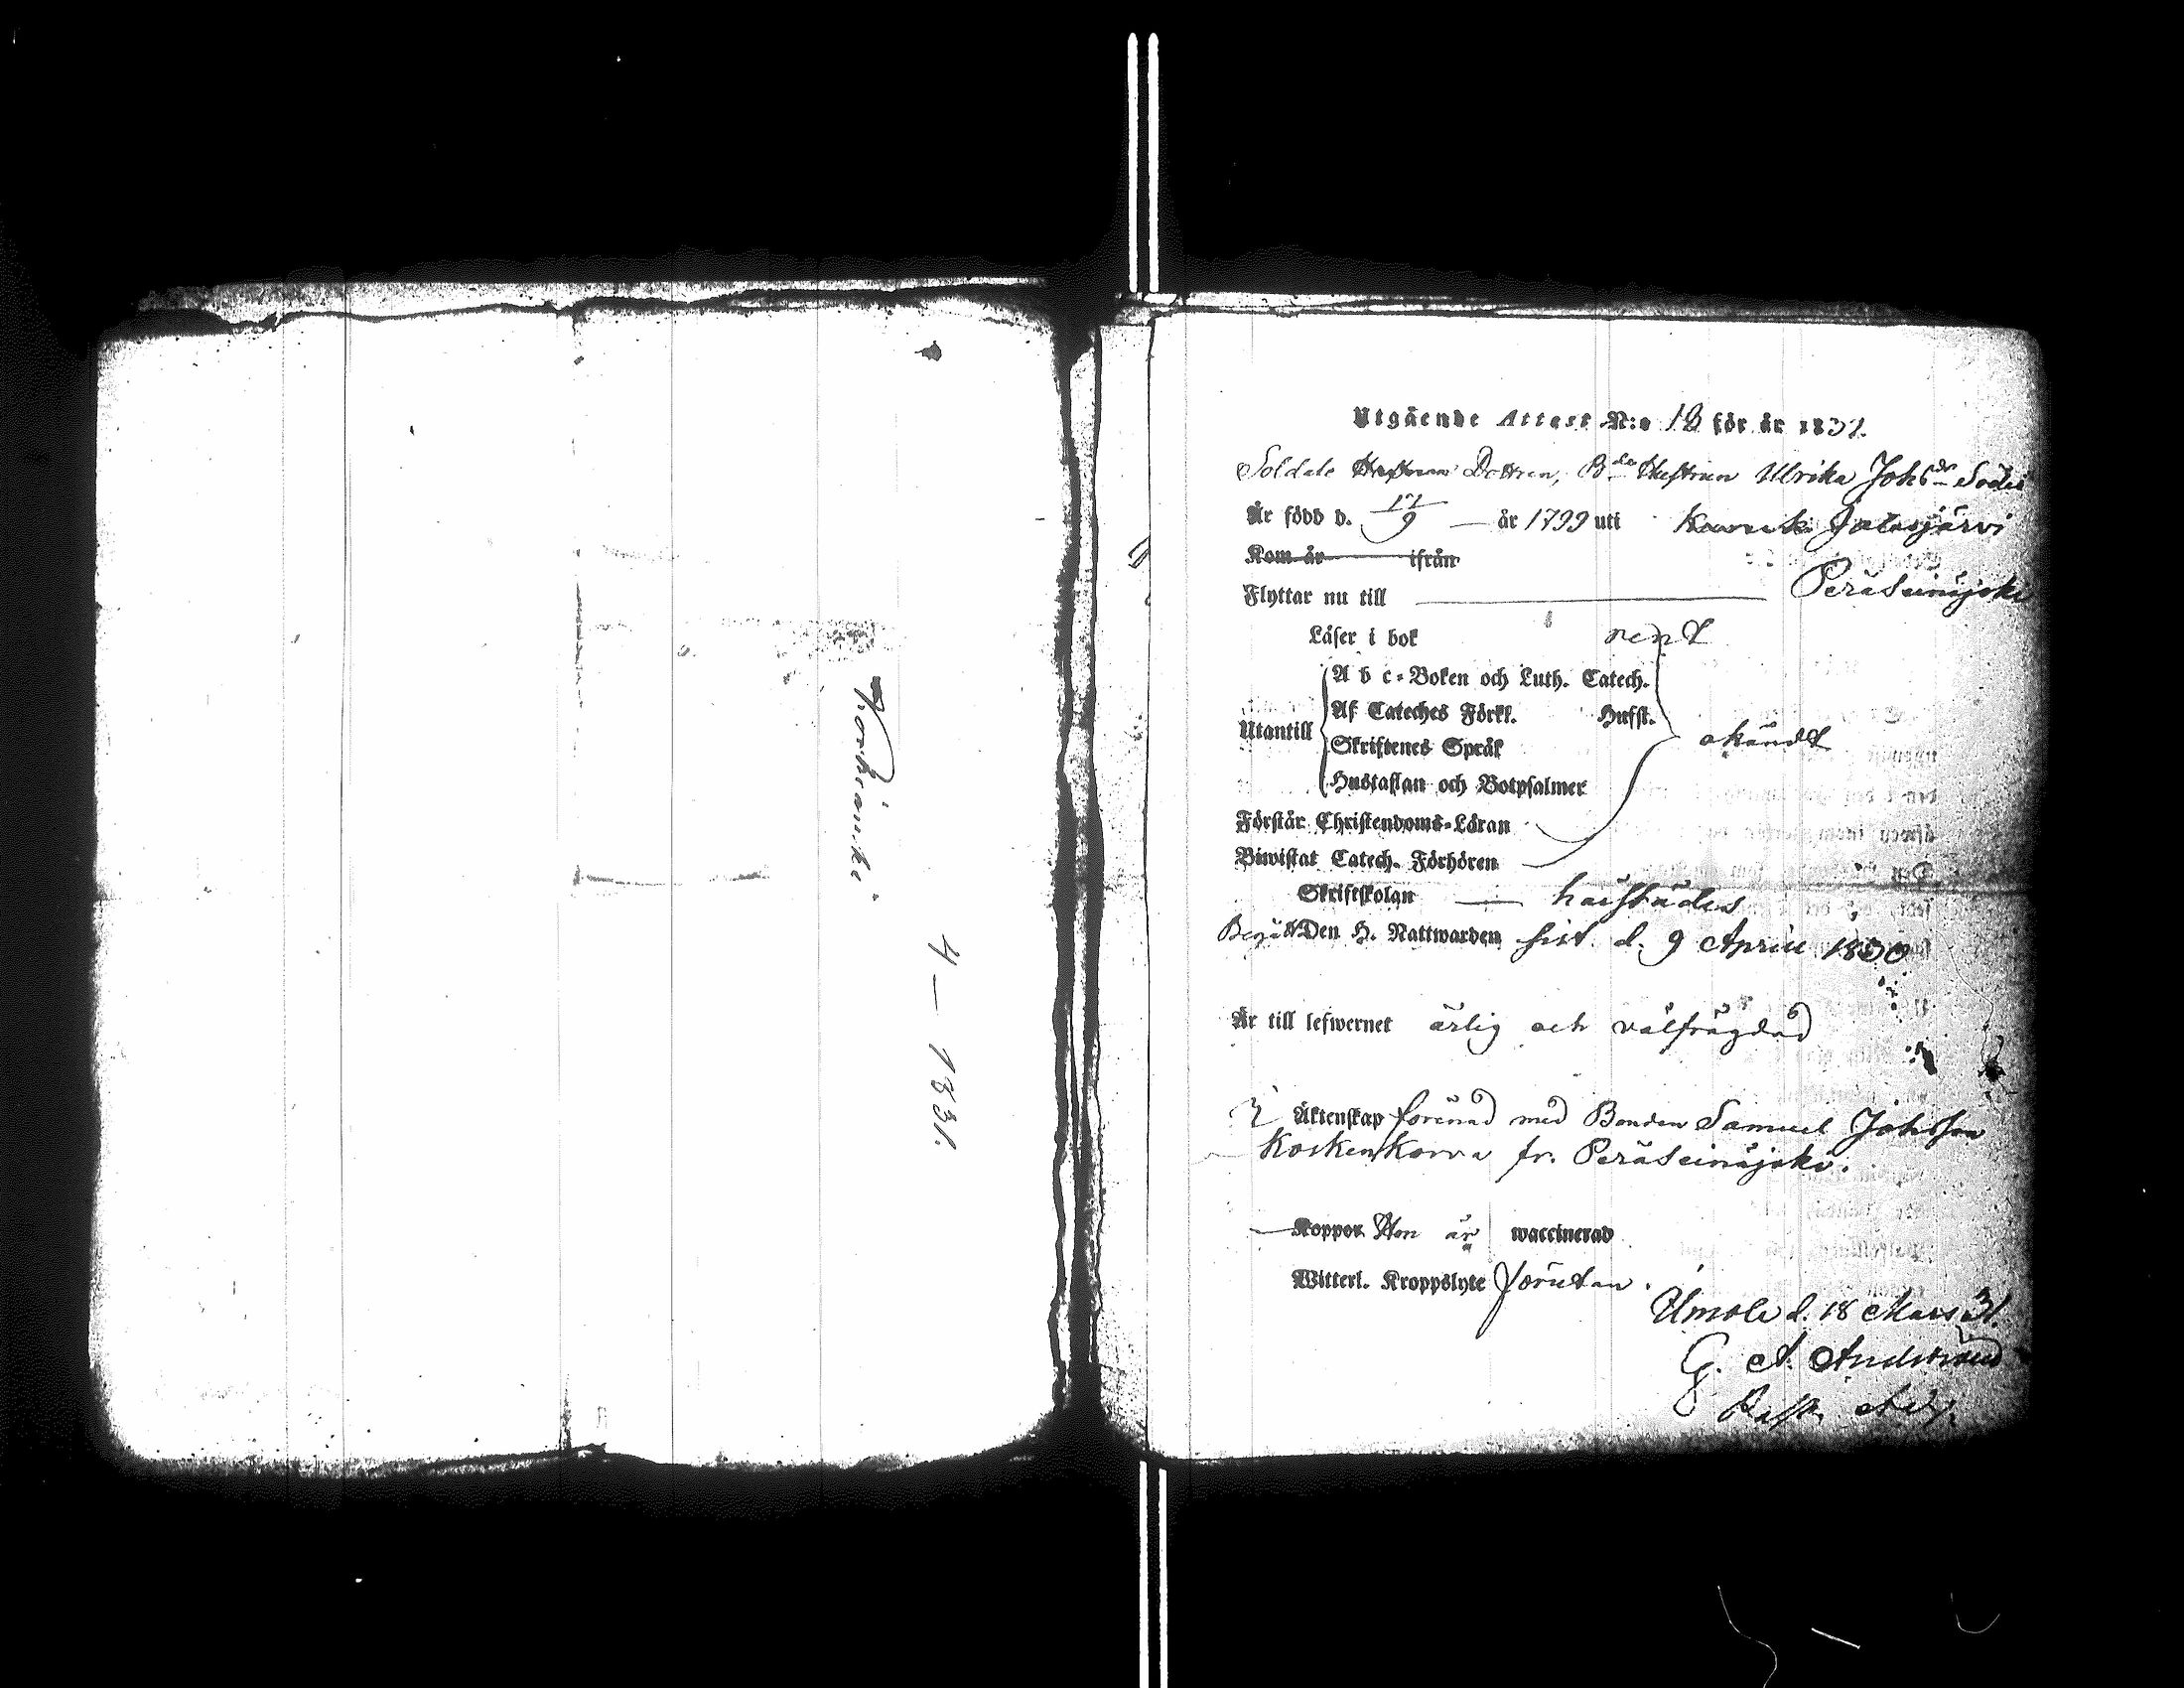 Koskiauski.
4 — 1831.
Utgående Attest N:o 18 för år 1831.
Soldate Dottren, Bde Hustrun Ulrika Johsdr
Är född d. 17/9 — år 1799 uti Jalasjärvi
Kom år ifrån
Flyttar nu till Peräseinäjoki
Läser i bok rent
A b c-Boken och Luth. Catech.
Af Cateches Förkl. Husft.
Utantill okändt
Skriftenes Språk
Hustaflan och Botpsalmer
Förstår Christendoms-Läran
Biwistat Catech. Förhören
Skriftskolan —
Begått Den H. Nattwarden sist d. 9 April 1830
Är till lefwernet ärlig och välfrägdad
I Äktenskap förenad med Bonden Samuel Johsson
Koskenkorva fr. Peräseinäjoki.
Koppor Hon är waccinerad
Witterl. Kroppslyte förutan.
Ilmola d. 18 Mars 31.
G. A.